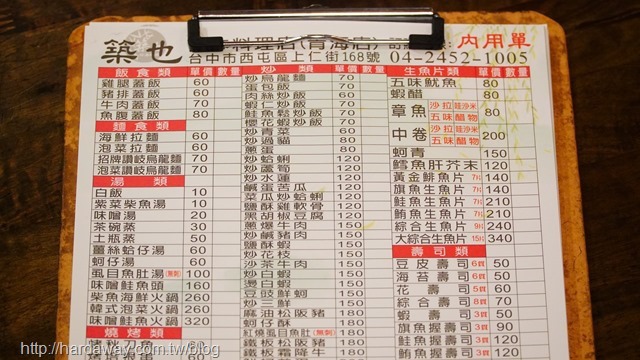 築也
料理店(青海店)
內用單
台中市西屯區上仁街168號 04-2452-1005
飯食類 單價 數量
雞腿蓋飯 60
豬排蓋飯 60
牛肉蓋飯 70
魚腹蓋飯 80
麵食類 單價 數量
海鮮拉麵 60
泡菜拉麵 60
招牌讚岐烏龍麵 70
泡菜讚岐烏龍麵 70
湯類 單價 數量
白飯 10
紫菜柴魚湯 10
味噌湯 20
茶碗蒸 30
土瓶蒸 50
薑絲蛤仔湯 60
蚵仔湯 60
虱目魚肚湯(無刺) 100
味噌鮭魚頭 160
柴魚海鮮火鍋 260
韓式泡菜火鍋 260
味噌鮭魚火鍋 320
燒烤類 單價 數量
炒類 單價 數量
炒烏龍麵 70
蛋包飯 70
肉絲炒飯 60
蝦仁炒飯 70
鮭魚鬆炒飯 70
櫻花蝦炒飯 70
炒青菜 60
炒過貓 80
蔥蛋 80
炒蛤蜊 120
炒蘆筍 120
炒水蓮 120
鹹蛋苦瓜 120
菜瓜炒蛤蜊 120
鹽酥雞軟骨 120
黑胡椒豆腐 120
蔥爆牛肉 150
炒鹹豬肉 150
鹽酥蝦 150
炒花枝 150
沙茶牛肉 150
炒白蝦 150
燙白蝦 150
豆豉鮮蚵 150
炒三鮮 150
麻油松阪豬
蚵仔酥
紅燒虱目魚肚(無刺)
鐵板松阪豬
鐵板霜降牛
生魚片類 單價 數量
五味魷魚 80
蝦醋 80
章魚 沙拉 哇沙米 五味 醋物
中卷 沙拉 哇沙米 五味 醋物 200
蚵青 150
鱈魚肝芥末 120
黃金鯡魚片 7片 140
旗魚生魚片 7片 140
鮭魚生魚片 7片 140
鮪魚生魚片 7片 140
綜合生魚片 9片 240
大綜合生魚片 15片 340
壽司類 單價 數量
豆皮壽司 6貫 50
海苔壽司 50
花壽司 50
綜合壽司 70
旗魚握壽司 90
鮭魚握壽司 90
鮪魚握壽司 90
http://hardaway.com.tw/blog